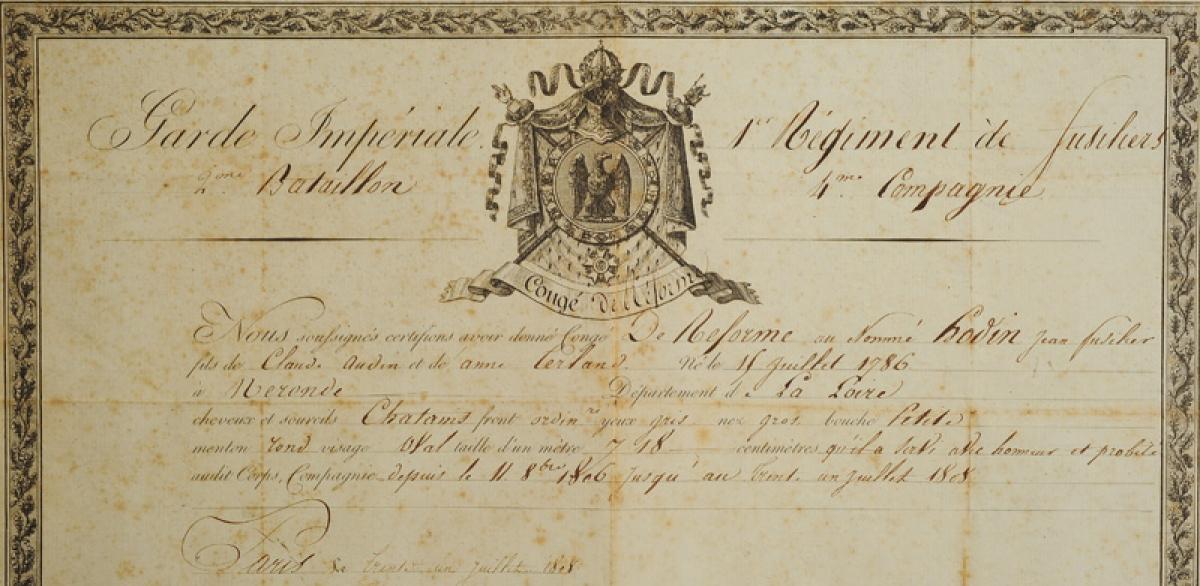 Garde Impériale. 1er Régiment de fusiliers
2me Bataillon 4me Compagnie
Congé de Réform
Nous soussignés certifions avoir donné Congé De Reforme au Nommé hodin jean fusilier
fils de Claude audin et de anne Né le 15 juillet 1786
à Département d e La Loire
cheveux et sourcils Chatains front ordinre yeux gris nez gros bouche Petite
menton rond visage oval taille d'un mètre 7 18 centimètres qu'il a servi avec honneur et probité
audit Corps, Compagnie depuis le 11 8bre 1806 jusqu'au trente un juillet 1808
Paris le trente un juillet 1808